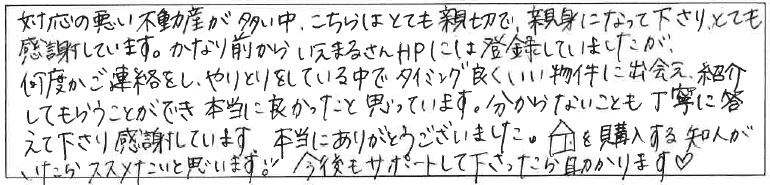 対応の悪い不動産が多い中、こちらはとても親切で、親身になって下さり、とても
感謝しています。かなり前からいえまるさんHPには登録していましたが、
何度かご連絡をし、やりとりをしている中でタイミング良くいい物件に出会え、紹介
してもらうことができ本当に良かったと思っています。分からないことも丁寧に答
えて下さり感謝しています。本当にありがとうございました。を購入する知人が
いたらススメたいと思います!! 今後もサポートして下さったら助かります♡